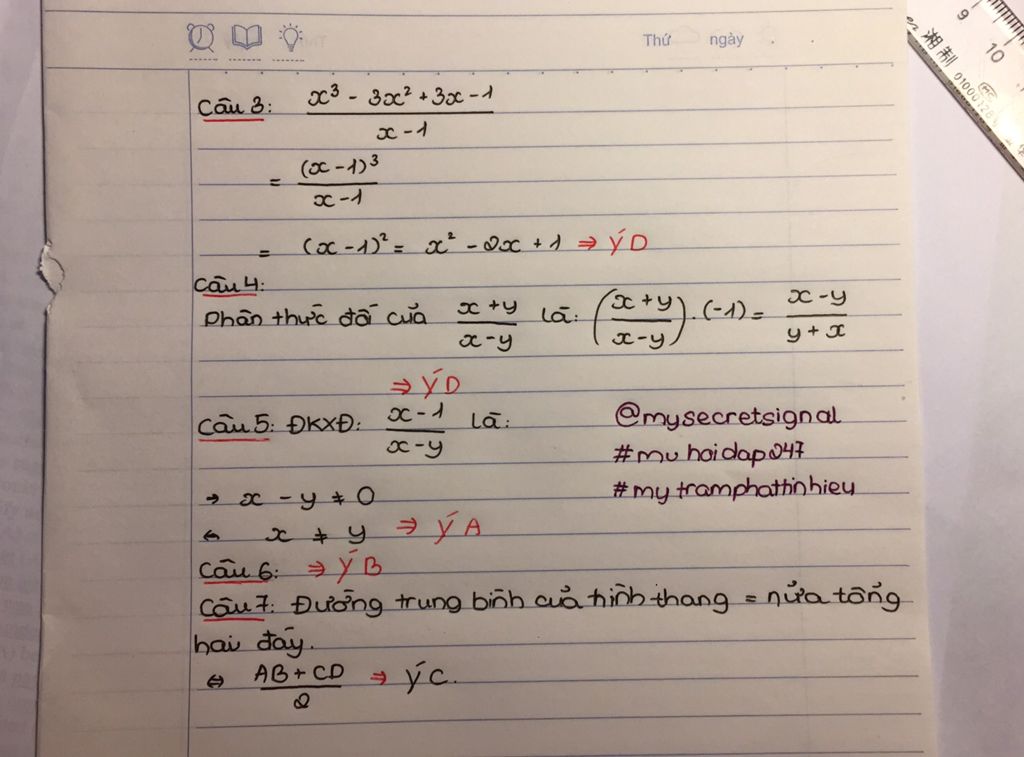 Thứ ngày
9 10
湘制
Câu 3: x³ - 3x² + 3x - 1 / x - 1
= (x - 1)³ / x - 1
= (x - 1)² = x² - 2x + 1 ⇒ Ý D
Câu 4:
Phân thức đối của x + y / x - y là: (x + y / x - y) . (-1) = x - y / y + x
⇒ Ý D
Câu 5: ĐKXĐ: x - 1 / x - y là:
→ x - y ≠ 0
⇔ x ≠ y ⇒ Ý A
@mysecretsignal
#muhoidap247
#mytramphattinhieu
Câu 6: ⇒ Ý B
Câu 7: Đường trung bình của hình thang = nửa tổng
hai đáy.
⇔ AB + CD / 2 ⇒ Ý C.